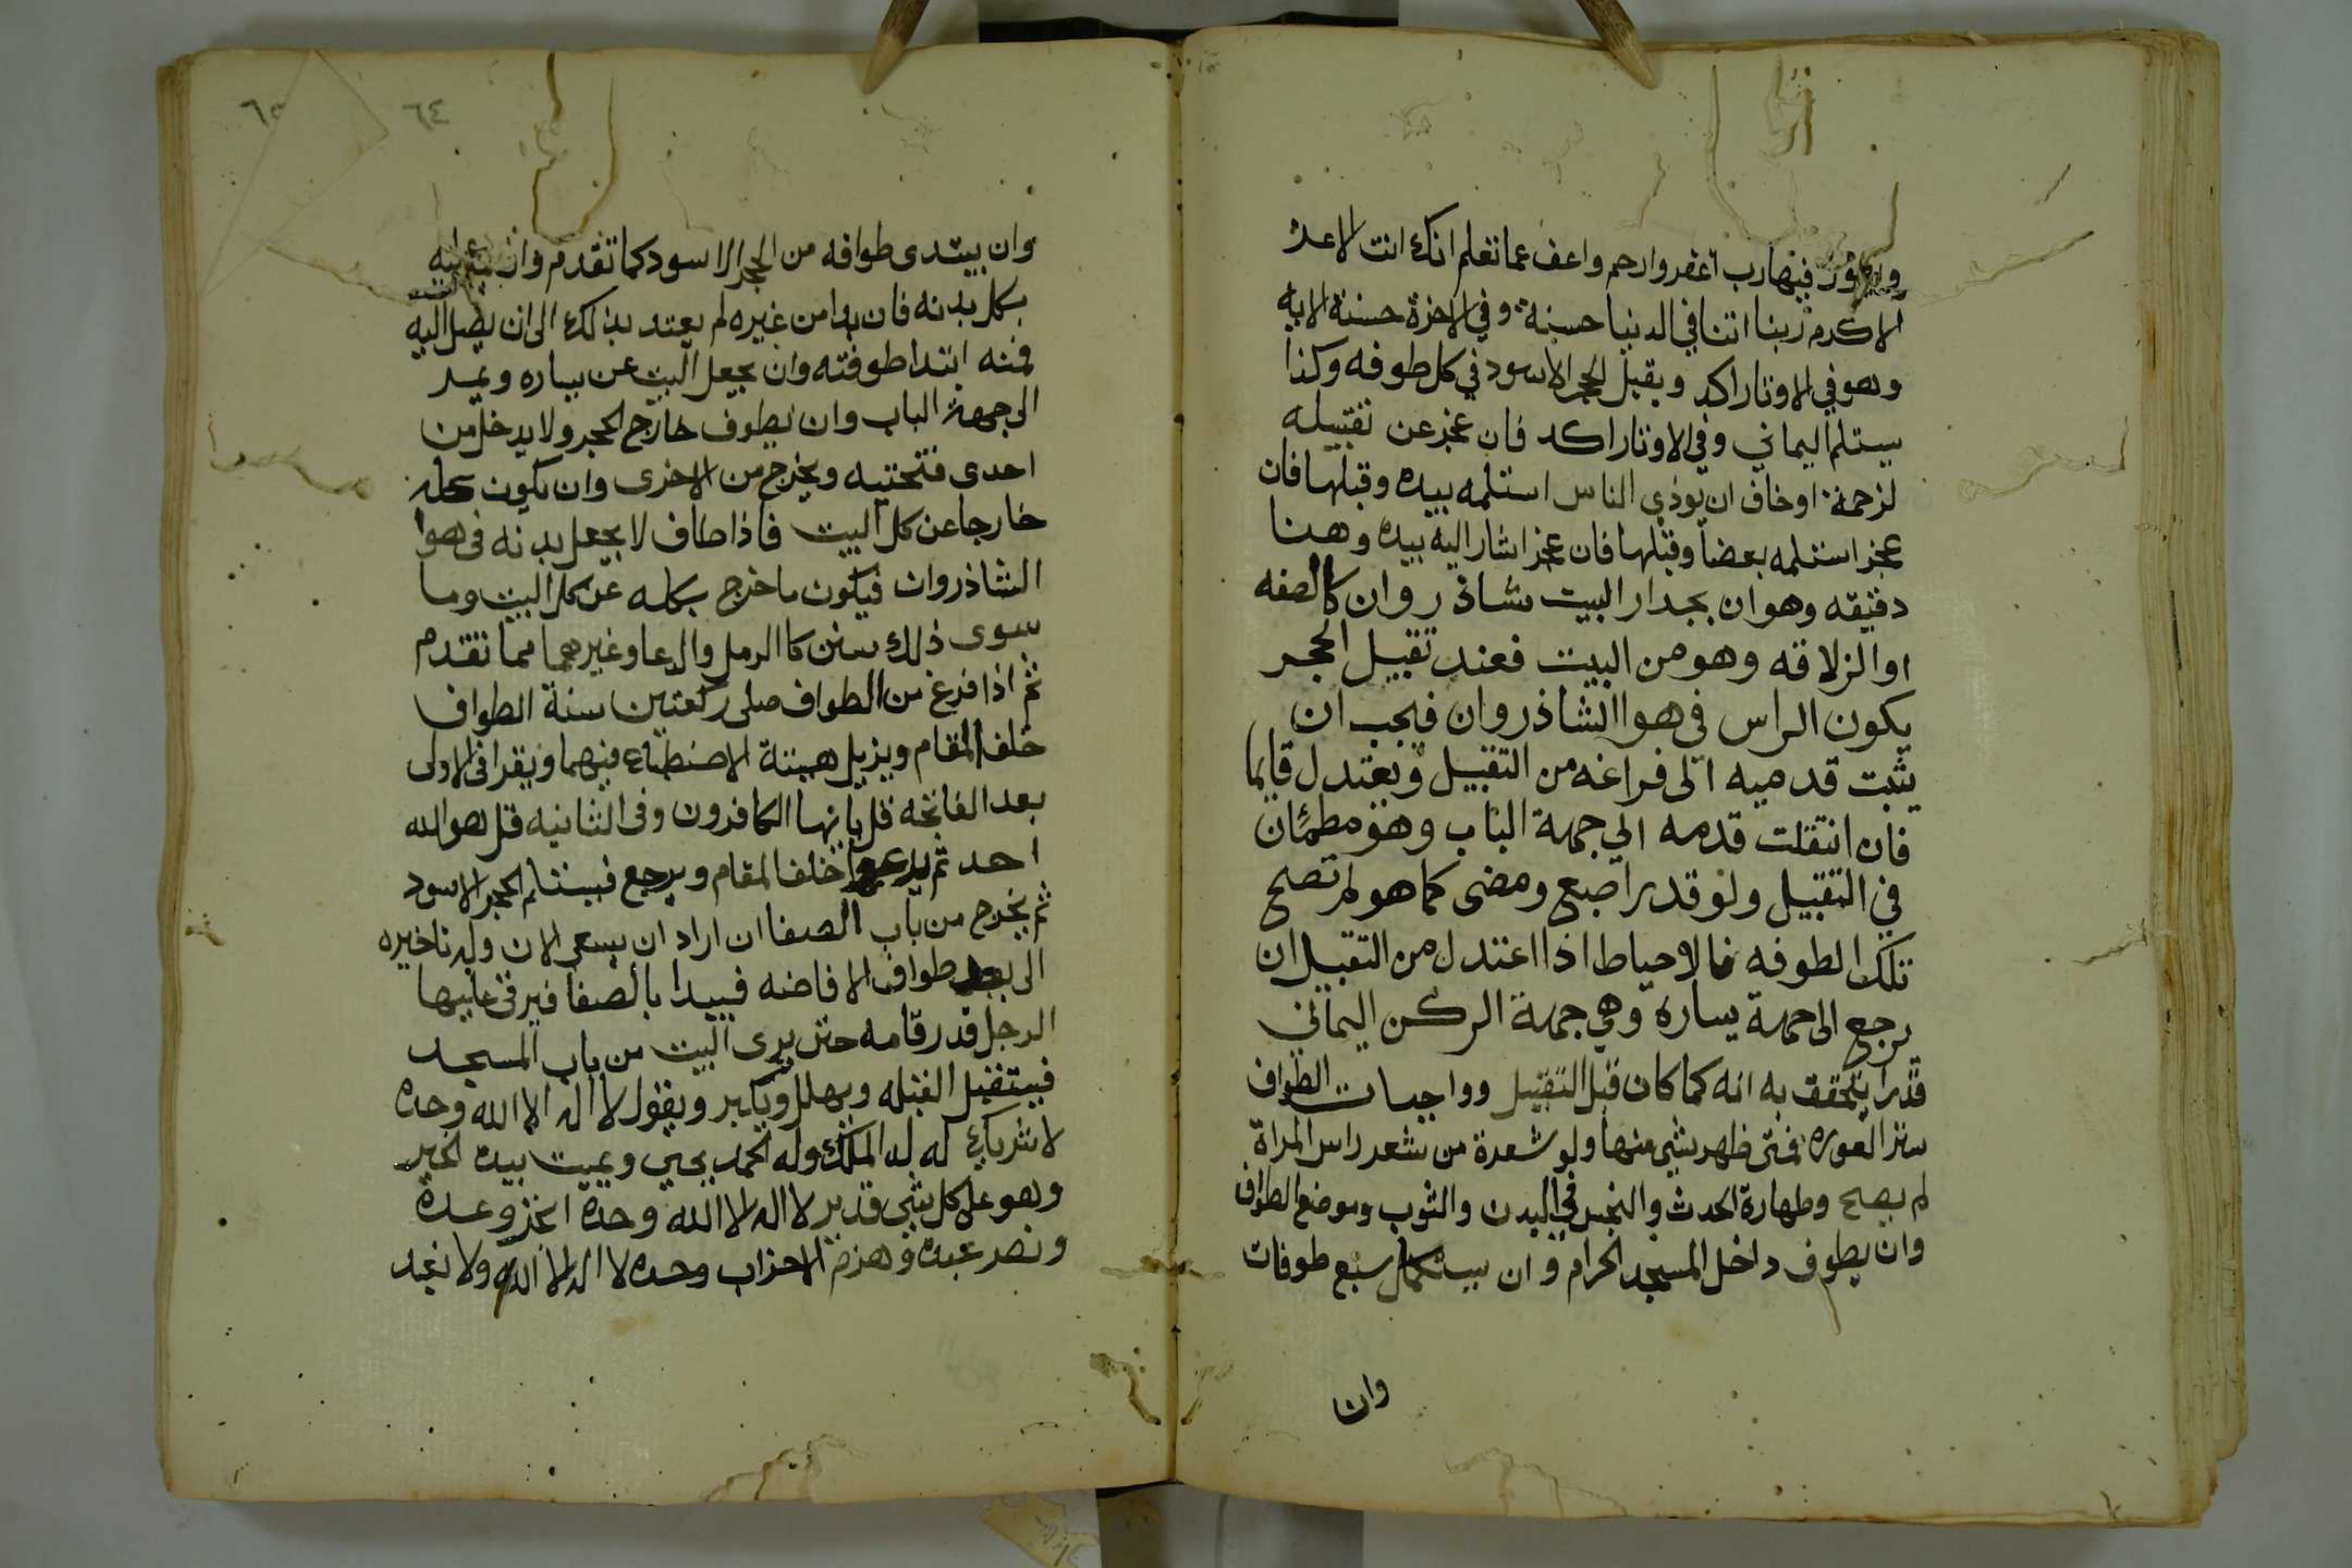 ويقول فيها رب اغفر وارحم واعف عما تعلم انك انت الاعز
الاكرم ربنا اتنا في الدنيا حسنة وفي الاخرة حسنة الايه
وهو في الاوتار اكد ويقبل الحجر الاسود في كل طوفه وكذا
يستلم اليماني وفي الاوتار اكد فان عجز عن تقبيله
لزحمة او خاف ان يوذي الناس استلمه بيده وقبلها فان
عجز استلمه بعضا وقبلها فان عجز اشار اليه بيده وهنا
دقيقه وهو ان بجدار البيت شاذروان كالصفه
او الزلاقه وهو من البيت فعند تقبيل الحجر
يكون الراس في هوا الشاذروان فيجب ان
يثبت قدميه الى فراغه من التقبيل ويعتدل قايما
فان انتقلت قدمه الي جهة الباب وهو مطمئان
في التقبيل ولو قدر اصبع ومضى كما هو لم تصح
تلك الطوفه فالاحياط اذا اعتدل من التقبيل ان
يرجع الى جهة يساره وهي جهة الركن اليماني
قدرا يتحقق به انه كما كان قبل التقبيل وواجبات الطواف
ستر العوره فمتى ظهر شي منها ولو شعرة من شعر راس المراة
لم يصح وطهارة الحدث والنجس في البدن والثوب وموضع الطواف
وان يطوف داخل المسجد الحرام وان يستكمل سبع طوفات
وان
٦٤
٦٥
وان يبتدى طوافه من الحجر الاسود كما تقدم وان يمر عليه
بكل بدنه فان بدا من غيره لم يعتد بذلك الى ان يصل اليه
فمنه ابتدا طوفته وان يجعل البيت عن يساره ويمر
الى جهة الباب وان يطوف خارج الحجر ولا يدخل من
احدى فتحتيه ويخرج من الاخرى وان يكون كله
خارجا عن كل البيت فاذا طاف لا يجعل بدنه في هوا
الشاذروان فيكون ما خرج بكله عن كل البيت وما
سوى ذلك سنن كالرمل والدعا وغيرهما مما تقدم
ثم اذا فرغ من الطواف صلى ركعتين سنة الطواف
خلف المقام ويزيل هيئة الاضطباع فيهما ويقرا في الاولى
بعد الفاتحه قل يا ايها الكافرون وفي الثانيه قل هو الله
احد ثم يدعوا خلف المقام ويرجع فيستلم الحجر الاسود
ثم يخرج من باب الصفا ان اراد ان يسعى الان وله تاخيره
الى بعد طواف الافاضه فيبدا بالصفا فيرقى عليها
الرجل قدر قامه حتى يرى البيت من باب المسجد
فيستقبل القبله ويهلل ويكبر ويقول لا اله الا الله وحده
لا شريك له له الملك وله الحمد يحيي ويميت بيده الخير
وهو على كل شي قدير لا اله الا الله وحده انجز وعده
ونصر عبده وهزم الاحزاب وحده لا اله الا الله ولا نعبد